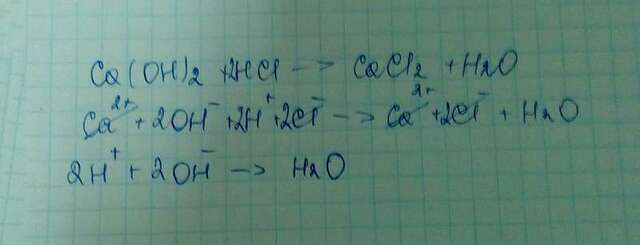 Ca(OH)2 + 2HCl --> CaCl2 + H2O
Ca²⁺ + 2OH⁻ + 2H⁺ + 2Cl⁻ --> Ca²⁺ + 2Cl⁻ + H2O
2H⁺ + 2OH⁻ --> H2O